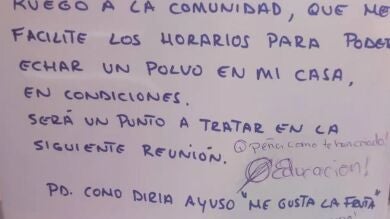 RUEGO A LA COMUNIDAD, QUE ME
FACILITE LOS HORARIOS PARA PODER
ECHAR UN POLVO EN MI CASA,
EN CONDICIONES.
SERÁ UN PUNTO A TRATAR EN LA
SIGUIENTE REUNIÓN.
como te han criado!
Educación!
PD. COMO DIRIA AYUSO "ME GUSTA LA FRUTA"